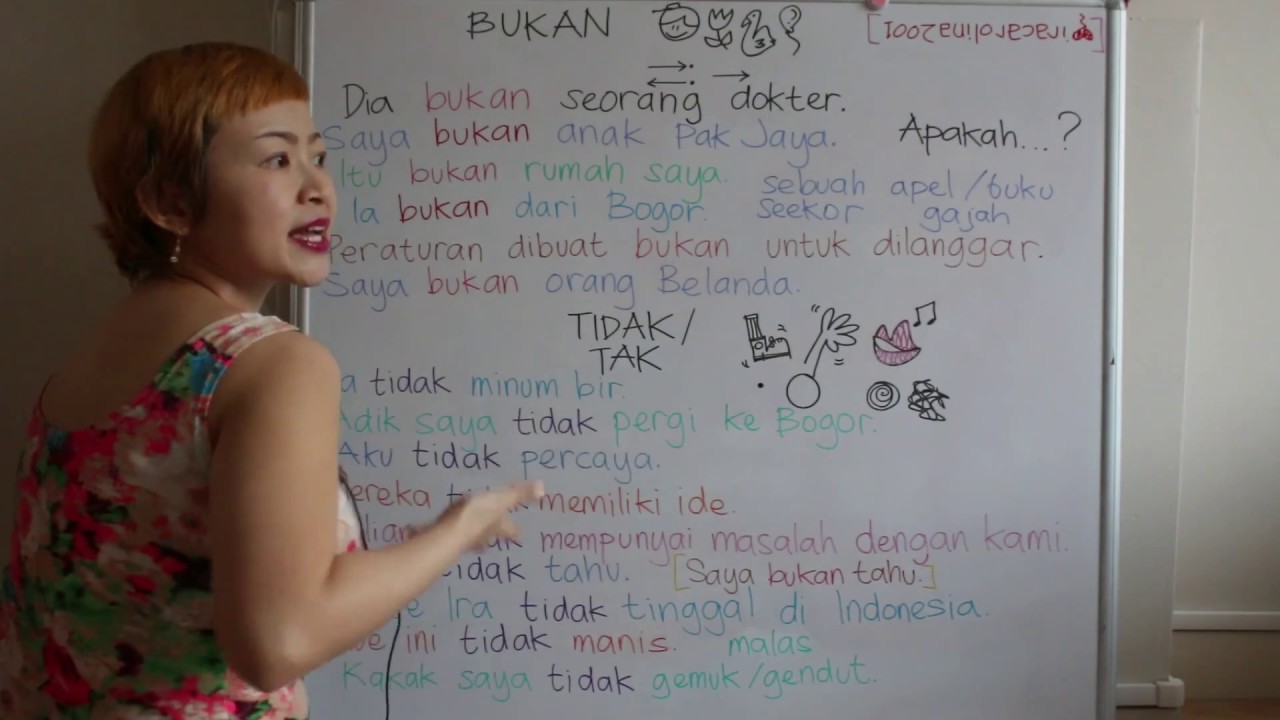 BUKAN
[iracarolina2001]
Dia bukan seorang dokter.
Saya bukan anak Pak Jaya. Apakah...?
Itu bukan rumah saya. sebuah apel/buku
Ia bukan dari Bogor. seekor gajah
Peraturan dibuat bukan untuk dilanggar.
Saya bukan orang Belanda.
TIDAK/
TAK
tidak minum bir.
Adik saya tidak pergi ke Bogor.
Aku tidak percaya.
memiliki ide.
mempunyai masalah dengan kami.
tidak tahu. [Saya bukan tahu.]
Ira tidak tinggal di Indonesia.
ini tidak manis. malas
Kakak saya tidak gemuk/gendut.